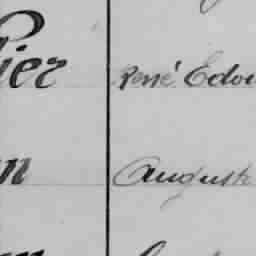 Pier René Edou
n August